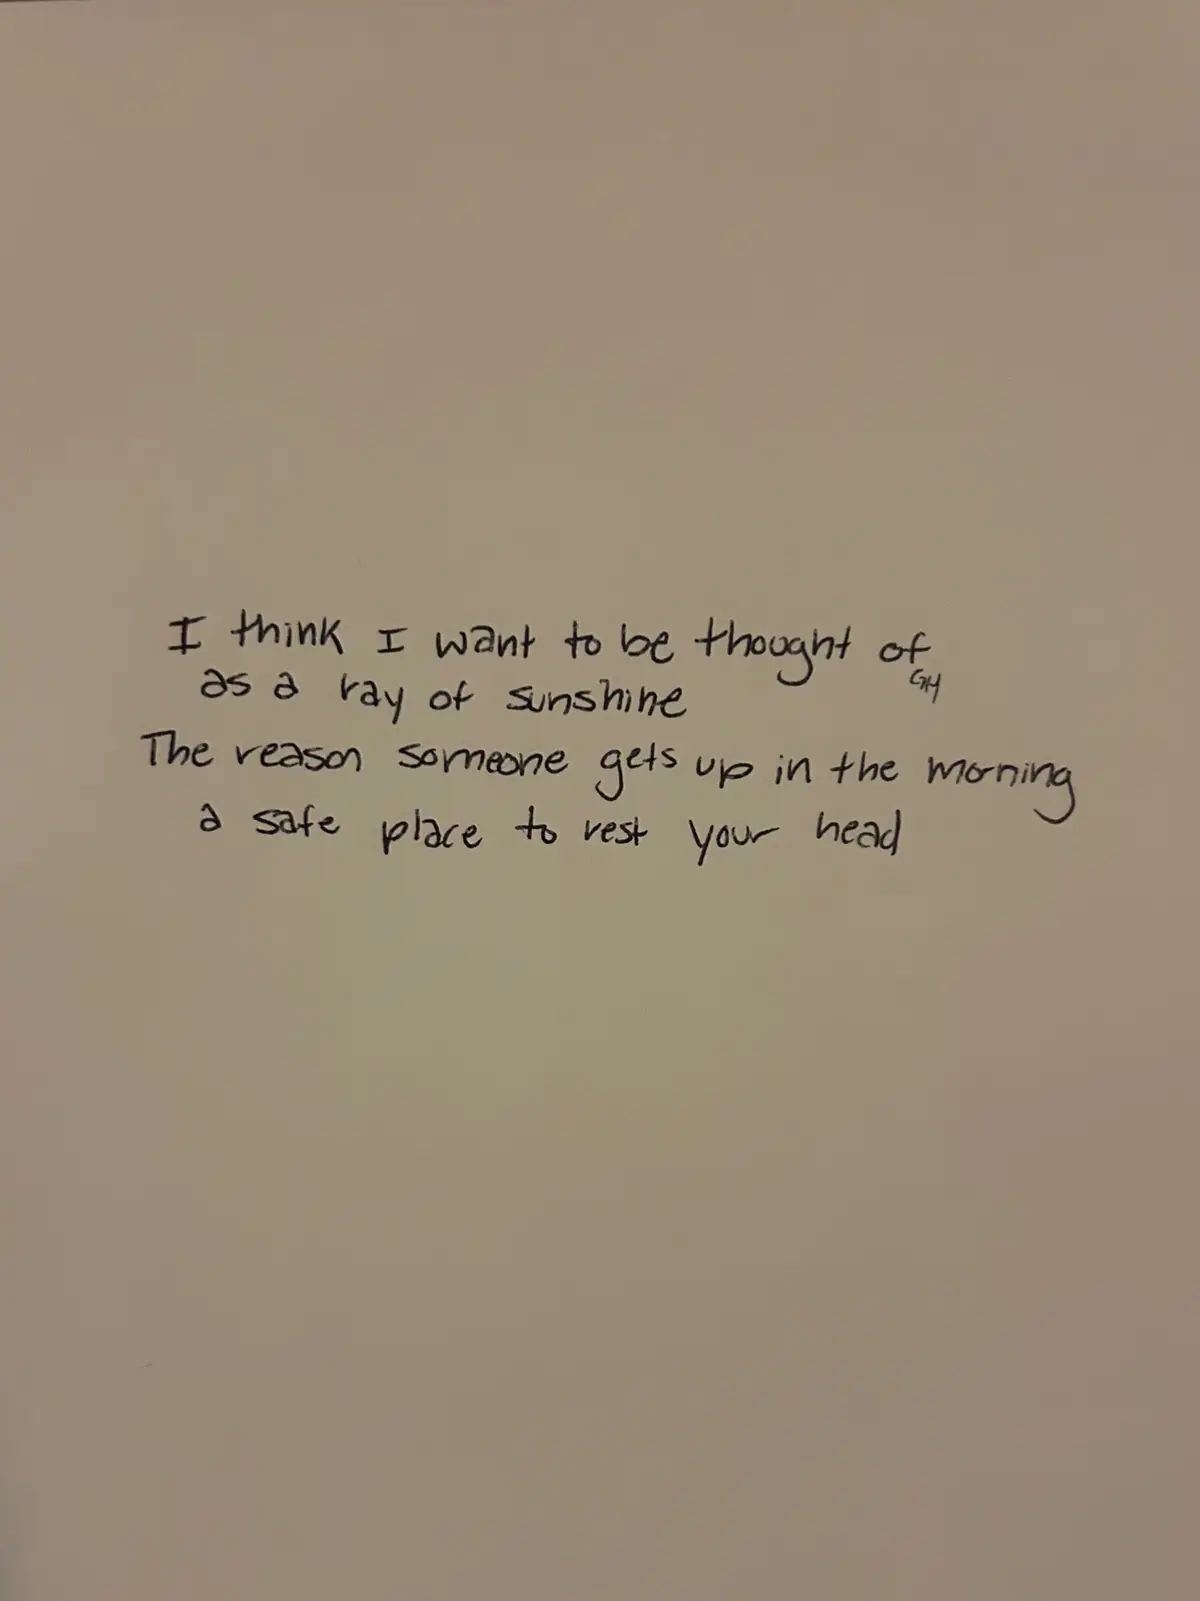 I think I want to be thought of
GH
as a ray of sunshine
The reason someone gets up in the morning
a safe place to rest your head